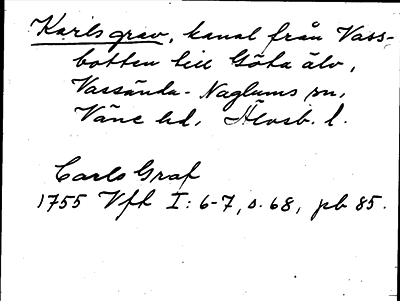 Karlsgrav, kanal från Vass-
botten till Göta älv,
Vassända-Naglums sn,
Väne hd, Älvsb. l.
Carls Graf
1755 Vfh I: 6-7, s. 68, pb 85.